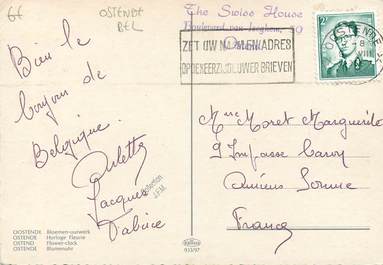 66
OSTENDE
BEL
The Swiss House
Boulevard van Iseghem, 30
ZET UW NAAM EN ADRES
OP DE KEERZIJDE UWER BRIEVEN
OOSTENDE
2
8
VIII
Bien le
bonjour de
Belgique
Arlette
Jacques
Fabrice
Collection
J.F.M.
Mme Moret Marguerite
9 Impasse Caroy
Amiens Somme
France
OOSTENDE Bloemen-uurwerk
OSTENDE Horloge Fleurie
OSTEND Flower-clock
OSTENDE Blumenuhr
933/97